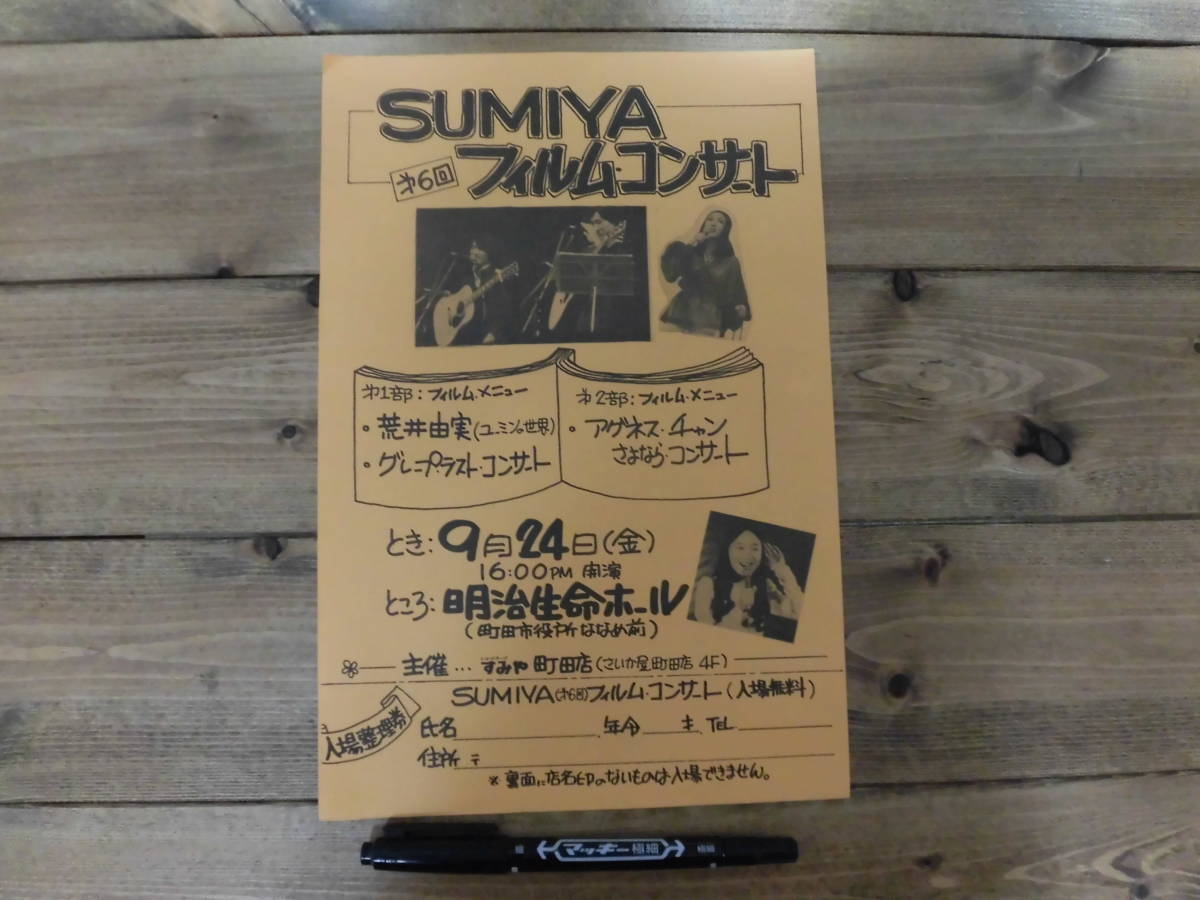 SUMIYA
才6回 フィルム・コンサート
才1部：フィルム・メニュー
・荒井由実(ユーミンの世界)
・グレープ・ラスト・コンサート
才2部：フィルム・メニュー
・アグネス・チャン
さよなら・コンサート
とき：9月24日(金)
16:00PM 開演
ところ：明治生命ホール
(町田市役所ななめ前)
主催…すみや町田店(さいか屋町田店 4F)
SUMIYA(才6回)フィルム・コンサート(入場無料)
入場整理券
氏名 年令 才 TEL
住所 〒
※裏面に店名印のないものは入場できません。
マッキー 極細